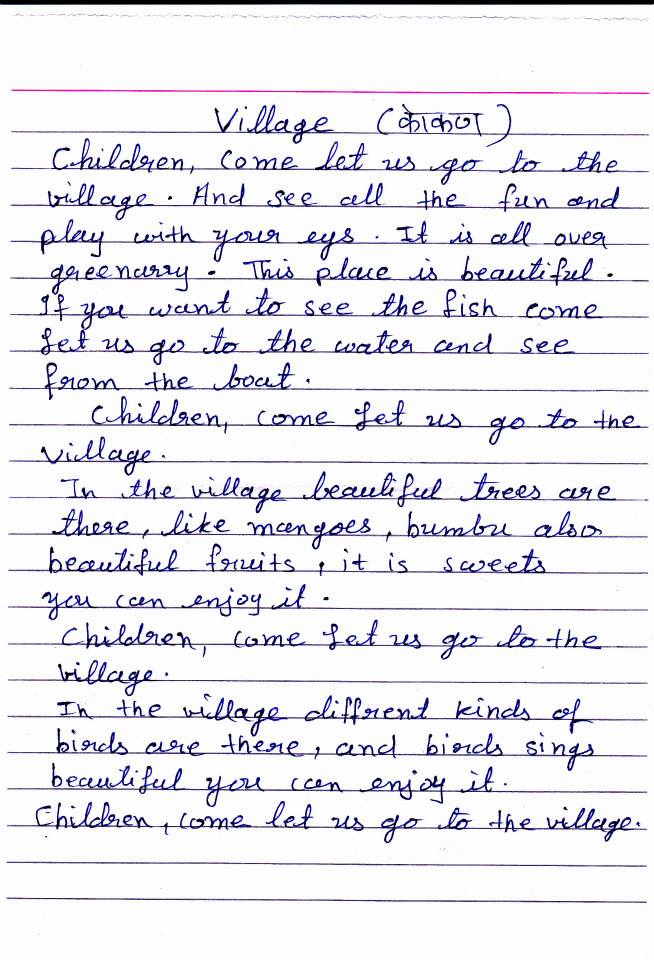 Village (कोकण)
Children, come let us go to the
village. And see all the fun and
play with your eys. It is all over
greenarry. This place is beautiful.
If you want to see the fish come
Let us go to the water and see
from the boat.
Children, come Let us go to the
village.
In the village beautiful trees are
there, like mangoes, bumbu also
beautiful fruits, it is sweets
you can enjoy it.
Children, come Let us go to the
village.
In the village diffrent kinds of
birds are there, and birds sings
beautiful you can enjoy it.
Children, come let us go to the village.